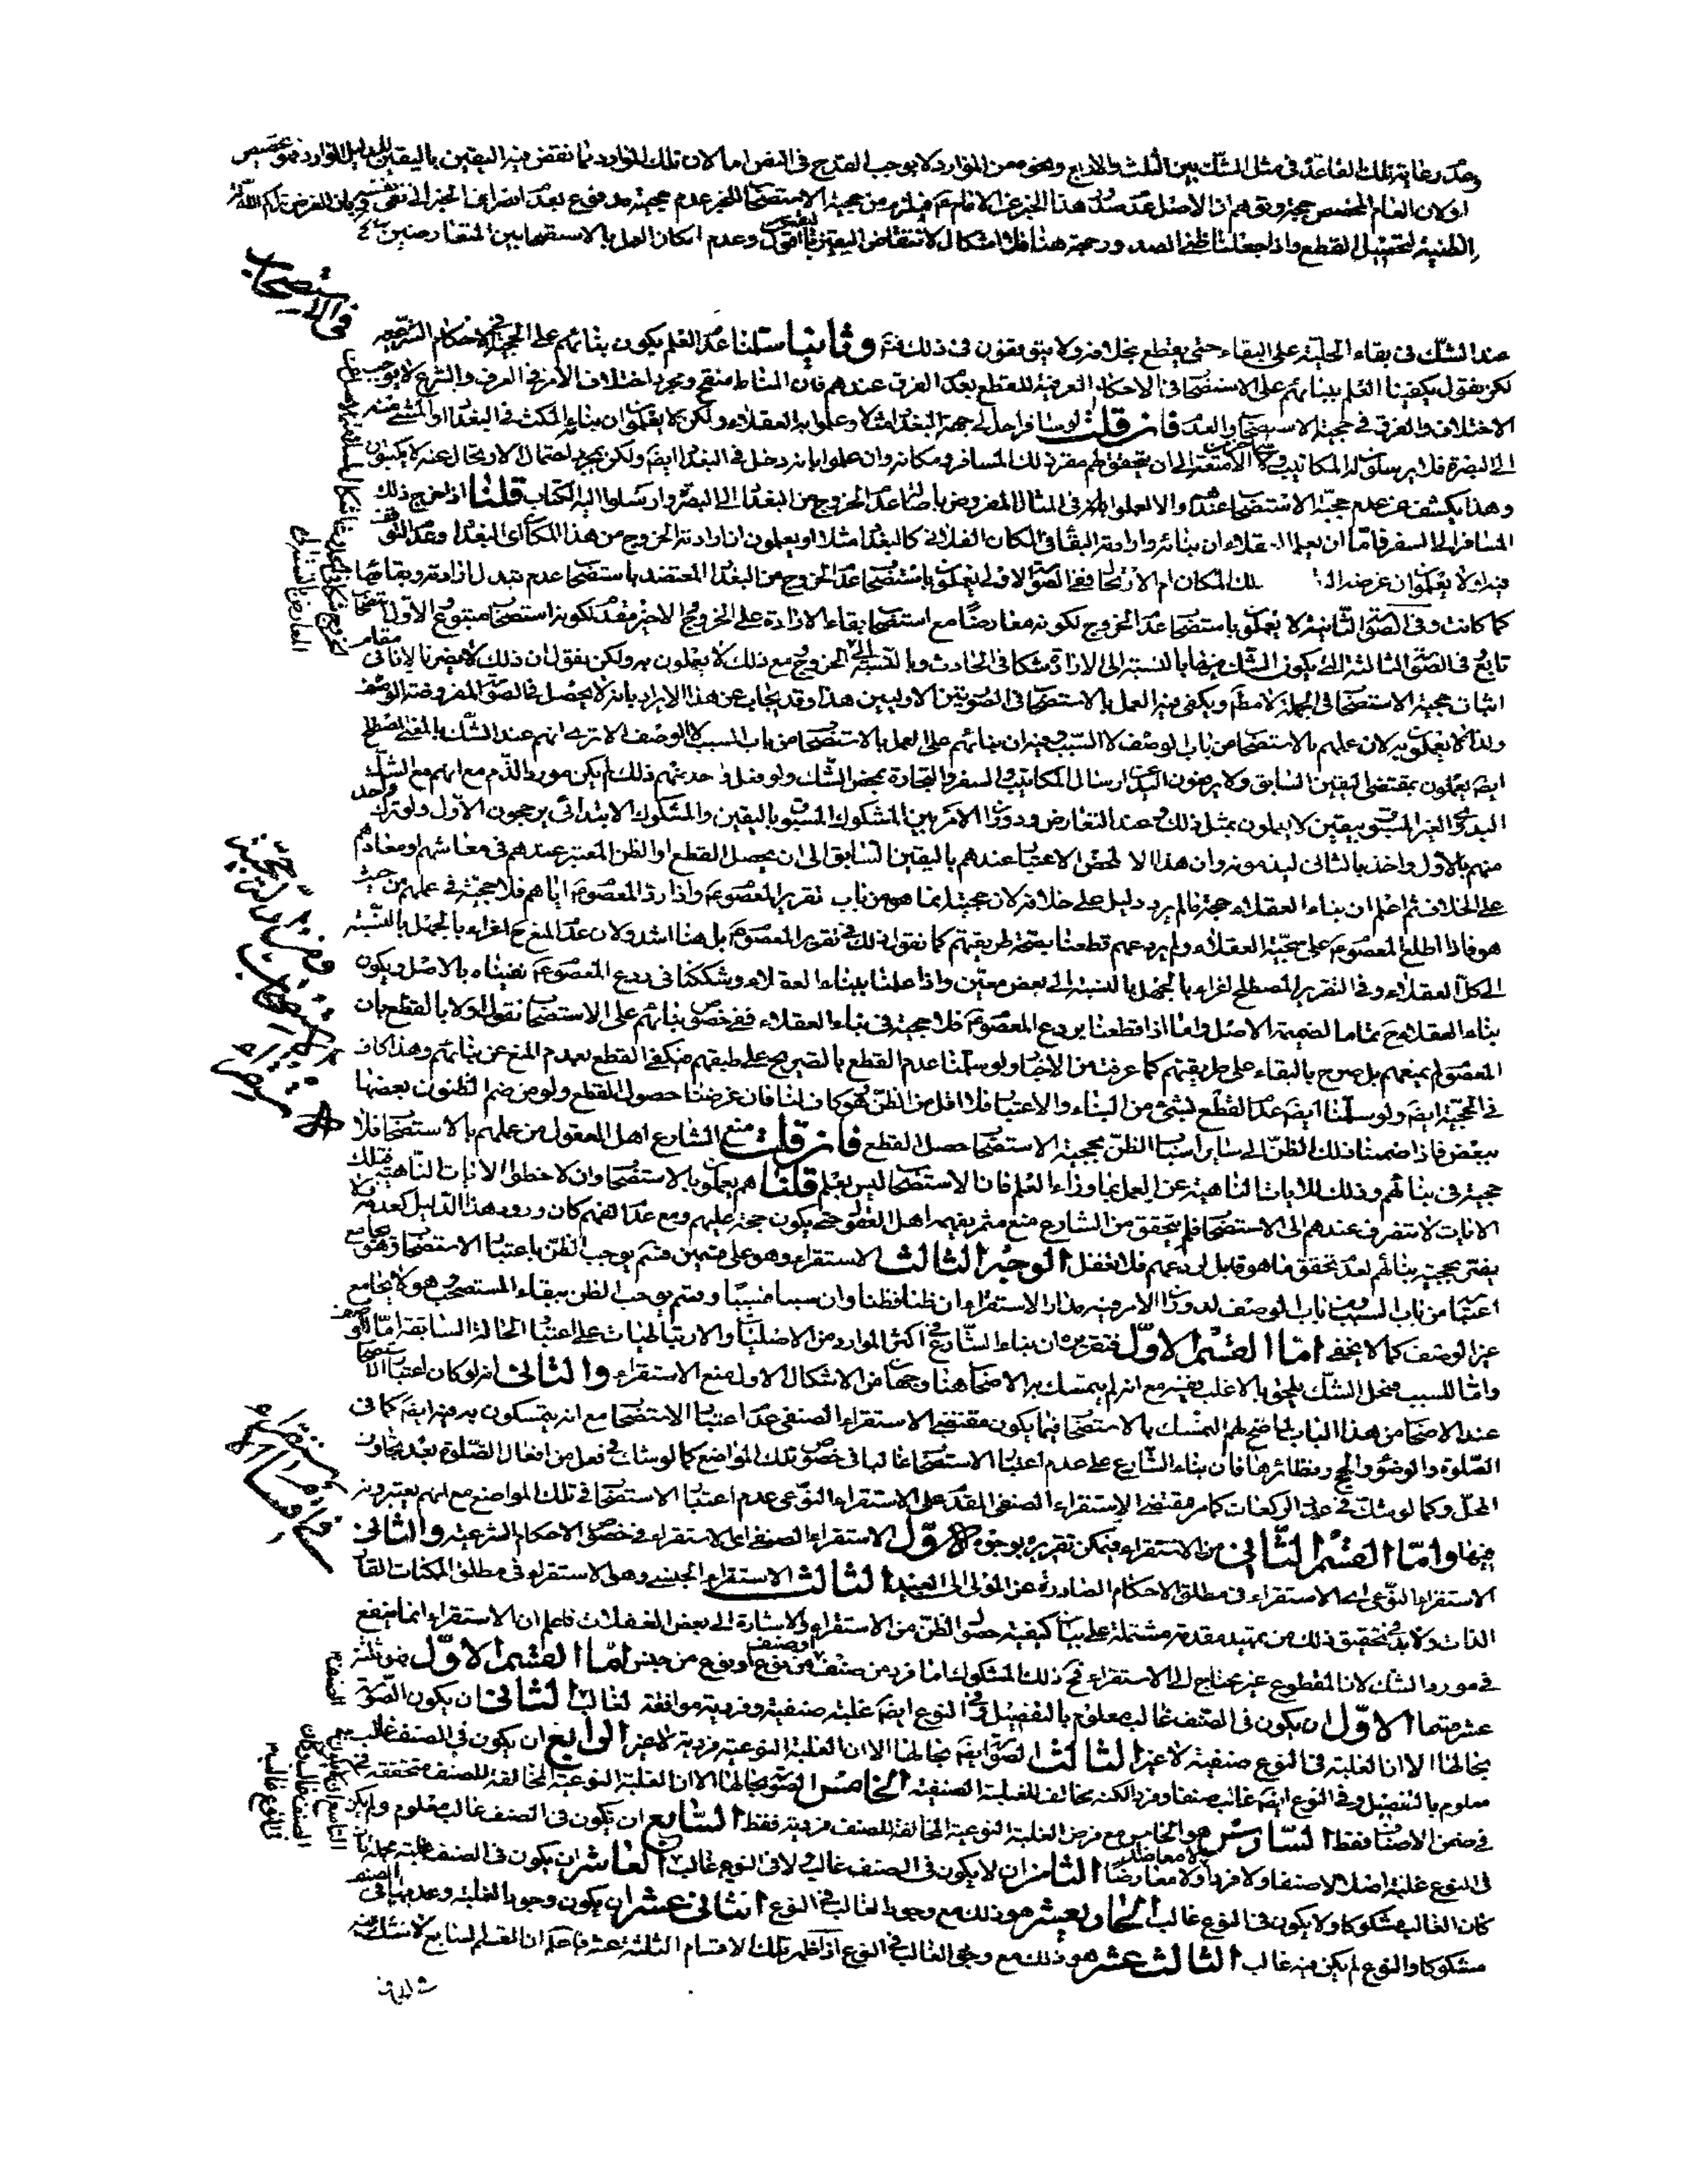 وعدم رعاية تلك القاعدة في مثل الشك بين الثلث والاربع ونحوه من الموارد لا يوجب القدح في النص اما لان تلك الموارد مما نقض فيه اليقين باليقين للدليل الوارد فهو تخصيص
او لان العام المخصص حجة وتوهم ان الاصل عدم صدور هذا الخبر عن الامام ع فيلزم من حجية الاستصحاب عدم حجيته مدفوع بعد انصراف الخبر الى نفي
الظنية لتحصيل القطع واذا جعلنا ظني الصدور حجة هنا فلا اشكال لا تنقاض اليقين وعدم امكان العمل بالاستصحابين المتعارضين
في الاستصحاب
عند الشك في بقاء الحلية على البقاء حتى يقطع بخلافه ولا يتوقفون في ذلك فتم وثانيا سلمنا عدم العلم بكون بنائهم على الحجية في الاحكام الشرعية
لكن نقول يكفينا العلم ببنائهم على الاستصحاب في الاحكام العرفية للقطع بعدم الفرق عندهم فان المناط منقح ومجرد اختلاف الامر في العرف والشرع لا يوجب
الاختلاف والفرق في حجية الاستصحاب والعدم فان قلت لو سافر احد الى جهة البغداد مثلا وعلموا به العقلاء ولكن لا يعلمون ان بناءه المكث في البغداد او المشي منه
الى البصرة فلا يرسلون له المكاتيب ولا الامتعة الى ان يتحقق لهم مقر ذلك المسافر ومكانه وان علموا بانه دخل في البغداد ايضا ولكن بمجرد احتمال الارتحال عنه لا يكتبون
وهذا يكشف عن عدم حجية الاستصحاب عندهم والا لعملوا به في المثال المفروض باصالة عدم الخروج من البغداد الى البصرة وارسلوا اليه الكتاب قلنا اذا خرج ذلك
المسافر الى السفر فاما ان يعلم العقلاء ان بنائه وارادته البقاء في المكان الفلاني كالبغداد مثلا او يعلمون ان ارادته الخروج من هذا المكان اي البغداد وعدم التوقف
فيه او لا يعلمون ان غرضه ذلك المكان ام الارتحال ففي الصورة الاولى يعملون باستصحاب عدم الخروج من البغداد المعتضد باستصحاب عدم تبدل ارادته وبقائها
كما كانت وفي الصورة الثانية لا يعملون باستصحاب عدم الخروج لكونه معارضا مع استصحاب بقاء الارادة على الخروج الاخير مقدم لكونه استصحاب متبوع والاول استصحاب
تابع في الصورة الثالثة التي يكون الشك فيها بالنسبة الى الارادة شكا في الحادث وبالنسبة الى الخروج مع ذلك لا يعملون به ولكن نقول ان ذلك لا يضرنا لانا في مقام
اثبات حجية الاستصحاب في الجملة لا مطلقا ويكفي فيه العمل بالاستصحاب في الصورتين الاوليين هذا وقد يجاب عن هذا الايراد بانه لا يحصل في الصورة المفروضة الوصف
ولذا لا يعملون به لان عملهم بالاستصحاب من باب الوصف لا السبب وفيه ان بنائهم على العمل بالاستصحاب من باب السبب لا الوصف الا ترى انهم عند الشك بالمعنى المصطلح
ايضا يعملون بمقتضى اليقين السابق ولا يرضون ارسال المكاتيب والسفر والتجارة بمحض الشك ولو فعل واحد منهم ذلك لم يكن مورد الذم مع انهم مع الشك
البدوي الغير المسبوق بيقين لا يعملون بمثل ذلك وعند التعارض ودوران الامر بين المشكوك المسبوق باليقين والمشكوك الابتدائي يرجحون الاول ولو ترك واحد
منهم بالاول واخذ بالثاني ليذمونه وان هذا الا لمحض الاعتبار عندهم باليقين السابق الى ان يحصل القطع او الظن المعتبر عندهم في معاشهم ومعادهم
على الخلاف ثم اعلم ان بناء العقلاء حجة ما لم يرد دليل على خلافه لان حجيته انما هو من باب تقرير المعصوم ع واذا ردع المعصوم ع اياهم فلا حجية في عملهم من حيث
هو فاذا اطلع المعصوم ع على سجية العقلاء ولم يردعهم قطعنا بصحة طريقتهم كما نقول ذلك في تقرير المعصوم ع بل هنا اشد ولان عدم المنع ح اغراء بالجهل بالنسبة
الى كل العقلاء وفي التقرير المصطلح اغراء بالجهل بالنسبة الى بعض معين واذا علمنا ببناء العقلاء وشككنا في ردع المعصوم ع نفيناه بالاصل ويكون
بناء العقلاء ح تماما بضميمة الاصل واما اذا قطعنا بردع المعصوم ع فلا حجية في بناء العقلاء ففي خصوص بنائهم على الاستصحاب نقول اولا بالقطع بان
المعصوم لم يمنعهم بل صرح بالبقاء على طريقتهم كما عرفت من الاخبار ولو سلمنا عدم القطع بالتصريح على طبقهم فيكفي القطع بعدم المنع عن بنائهم وهذا كاف
في الحجية ايضا ولو سلمنا ايضا عدم القطع بشيء من البناء والاعتبار فلا اقل من الظن هو كاف لنا فان غرضنا حصول القطع ولو من ضم الظنون بعضها
ببعض فاذا ضممنا ذلك الظن الى ساير اسباب الظن بحجية الاستصحاب حصل القطع فان قلت منع الشارع اهل العقول من عملهم بالاستصحاب فلا
حجية في بنائهم وذلك للايات الناهية عن العمل بما وراء العلم فان الاستصحاب ليس بعلم قلنا هم يعملون بالاستصحاب وان لاحظوا الايات الناهية فتلك
الايات لا تنصرف عندهم الى الاستصحاب فلم يتحقق من الشارع منع مثمر يفهمه اهل العقول حتى يكون حجة عليهم ومع عدم الفهم كان ورود هذا الدليل كعدمه فلا
يضر بحجية بنائهم لعدم تحقق ما هو قابل لردعهم فلا تغفل الوجه الثالث الاستقراء وهو على قسمين قسم يوجب الظن باعتبار الاستصحاب وهو يجامع
اعتباره من باب السبب ومن باب الوصف لدوران الامر فيه مدار الاستقراء ان ظنا فظنا وان سببا فسببا وقسم يوجب الظن ببقاء المستصحب هو لا يجامع
غير الوصف كما لا يخفى اما القسم الاول فتقريره ان بناء الشارع في اكثر الموارد من الاصليات والارتباطيات على اعتبار الحالة السابقة اما للوصف
واما للسبب فمحل الشك يلحق بالاغلب وفيه مع انه لم يتمسك به الاصحاب هنا وجهان من الاشكال الاول منع الاستقراء والثاني انه لو كان اعتبار الاستصحاب
عند الاصحاب من هذا الباب لما صح لهم التمسك بالاستصحاب فيما يكون مقتضى الاستقراء الصنفي عدم اعتبار الاستصحاب مع انهم يتمسكون به فيه ايضا كما في
الصلوة والوضوء والحج ونظائرها فان بناء الشارع على عدم اعتبار الاستصحاب غالبا في خصوص تلك المواضع كما لو شك في فعل من افعال الصلوة بعد تجاوز
المحل وكما لو شك في عدد الركعات كما مر مقتضى الاستقراء الصنفي المقدم على الاستقراء النوعي عدم اعتبار الاستصحاب في تلك المواضع مع انهم يعتبرونه
فيها واما القسم الثاني من الاستقراء فيمكن تقريره بوجوه الاول الاستقراء الصنفي اي الاستقراء في خصوص الاحكام الشرعية والثاني
الاستقراء النوعي اي الاستقراء في مطلق الاحكام الصادرة عن الموالي الى العبيد الثالث الاستقراء الجنسي وهو الاستقراء في مطلق الممكنات القار
الذات ولا بد في تحقيق ذلك من تمهيد مقدمة مشتملة على بيان كيفية حصول الظن من الاستقراء والاشارة الى بعض الغفلات فاعلم ان الاستقراء انما ينفع
في مورد الشك لان المقطوع غير محتاج الى الاستقراء فح ذلك المشكوك اما فرد من صنف او صنف من نوع او نوع من جنس اما القسم الاول فهو ثلثة
عشر قسما الاول ان يكون في الصنف غالب معلوم بالتفصيل وفي النوع ايضا غلبة صنفية وفردية موافقة لغالب الثاني ان يكون الصورة
بحالها الا ان الغلبة في النوع صنفية لا غير الثالث الصورة ايضا بحالها الا ان الغلبة النوعية فردية لا غير الرابع ان يكون في الصنف غالب
معلوم بالتفصيل وفي النوع ايضا غالب صنفا وفردا لكنه مخالف للغلبة الصنفية الخامس الصورة بحالها الا ان الغلبة النوعية المخالفة للصنف متحققة
في ضمن الاصناف فقط السادس هو الخامس مع فرض الغلبة النوعية المخالفة للصنف فردية فقط السابع ان يكون في الصنف غالب معلوم ولم يكن
في النوع غلبة اصلا لا صنفا ولا فردا ولا معارضا ولا معاضدا الثامن ان لا يكون في الصنف غالب لا في النوع غالب العاشر ان يكون في الصنف غلبة مجملة بان
كان الغالب مشكوكا ولا يكون في النوع غالب الحادي عشر هو ذلك مع وجود الغالب في النوع الثاني عشر ان يكون وجود الغلبة وعدمها في الصنف
مشكوكا والنوع لم يكن فيه غالب الثالث عشر هو ذلك مع وجود الغالب في النوع اذا ظهر تلك الاقسام الثلثة عشر فاعلم ان القسم السابع لا شك فيه